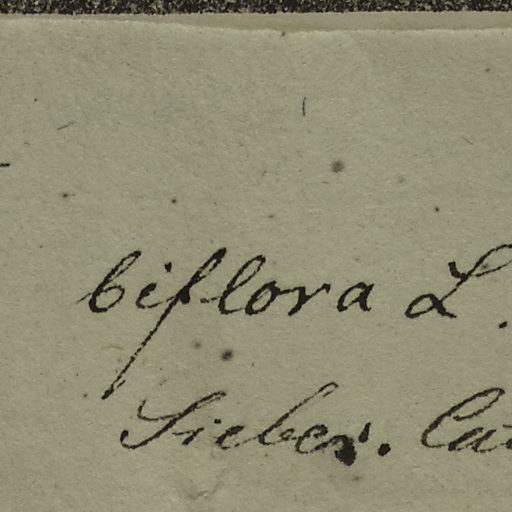 biflora L.
Sieber. Ca